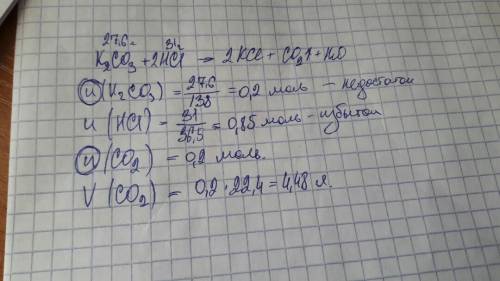 27,6 г 31 г
K₂CO₃ + 2HCl → 2KCl + CO₂↑ + H₂O
n (K₂CO₃) = 27,6 / 138 = 0,2 моль – недостаток
n (HCl) = 31 / 36,5 = 0,85 моль – избыток
n (CO₂) = 0,2 моль.
V (CO₂) = 0,2 · 22,4 = 4,48 л.